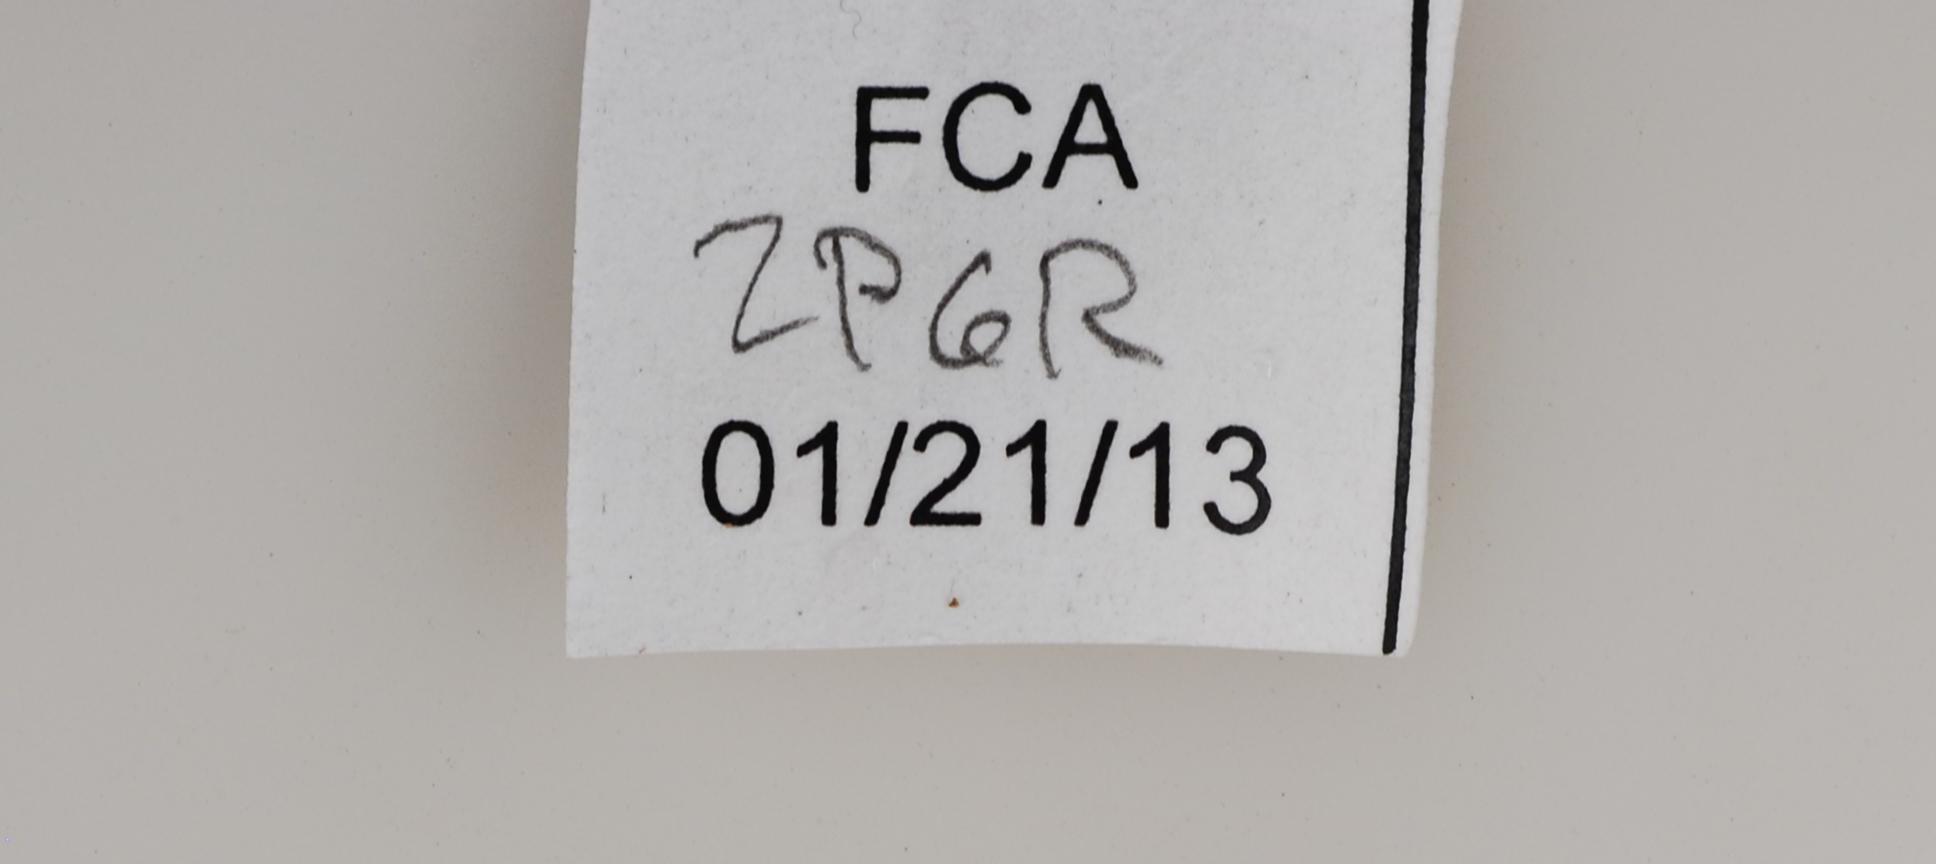 FCA
ZPGR
01/21/13